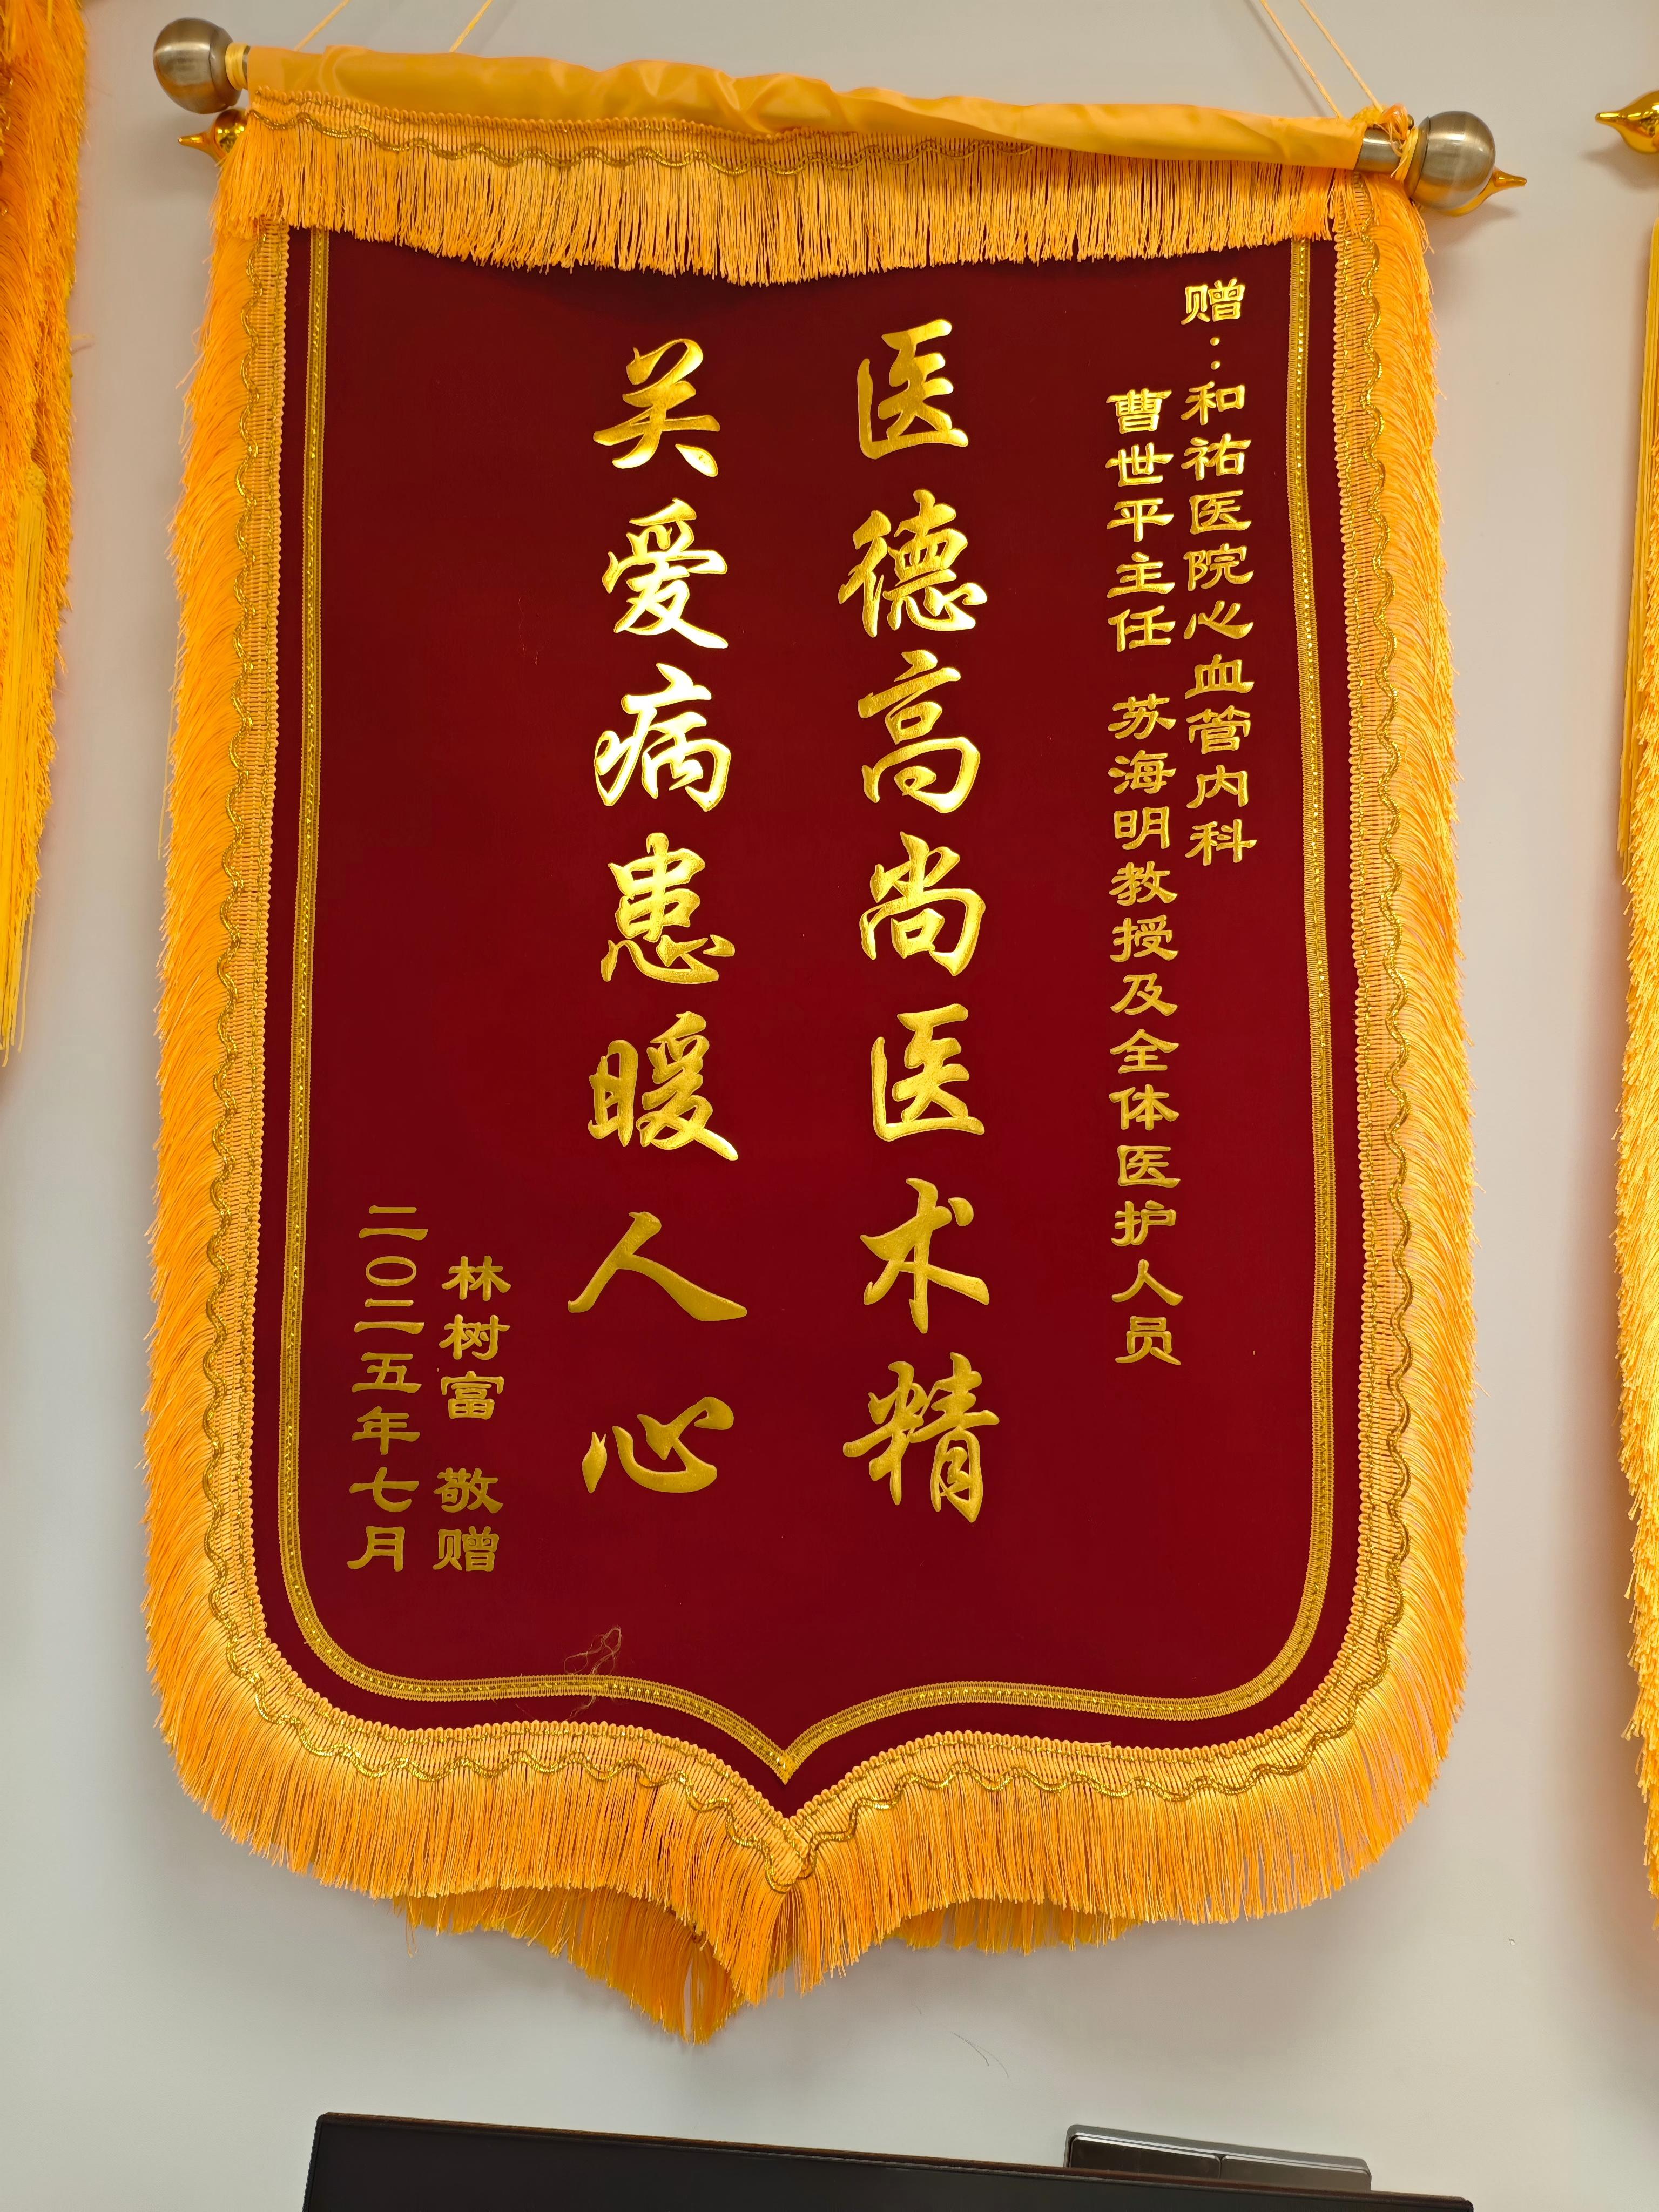 赠：和祐医院心血管内科
曹世平主任 苏海明教授及全体医护人员
医德高尚医术精
关爱病患暖人心
林树富 敬赠
二〇二五年七月